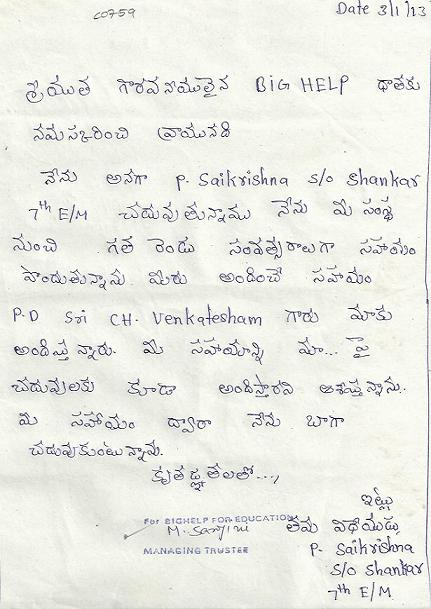 C0759
Date 3/1/13
శ్రీయుత గౌరవనీయులైన BIG HELP ధాతకు
నమస్కరించి వ్రాయునది
నేను అనగా P. Saikrishna S/O Shankar
7th E/M చదువుతున్నాము నేను మీ సంస్థ
నుంచి గత రెండు సంవత్సరాలుగా సహాయం
పొందుతున్నాను. మీరు అందించే సహాయం
P.D Sri CH. Venkatesham గారు మాకు
అందిస్తున్నారు. మీ సహాయాన్ని మా... పై
చదువులకు కూడా అందిస్తారని ఆశిస్తున్నాను.
మీ సహాయం ద్వారా నేను బాగా
చదువుకుంటున్నాను.
కృతజ్ఞతలతో...,
ఇట్లు
తమ విధేయుడు,
P. Saikrishna
S/O Shankar
7th E/M.
For BIGHELP FOR EDUCATION
MANAGING TRUSTEE